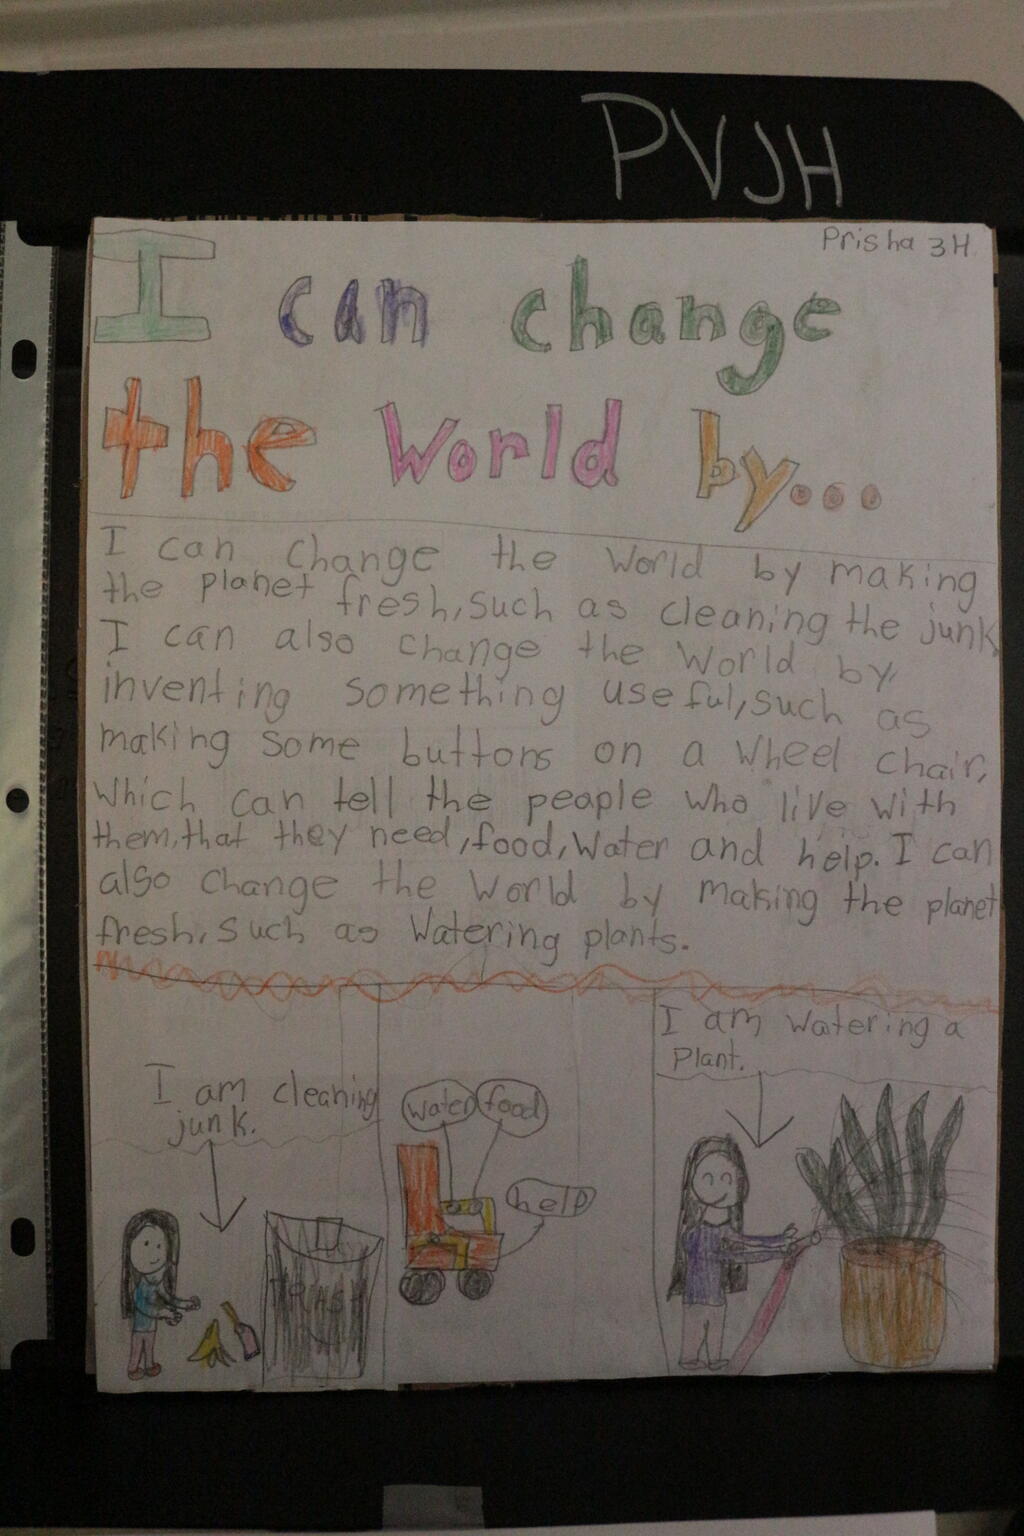 PVJH
Prisha 3H
I can change
the World by...
I can change the World by making
the planet fresh, such as cleaning the junk
I can also change the World by,
inventing something useful, such as
making some buttons on a wheel chair,
which can tell the people who live with
them, that they need, food, water and help. I can
also change the World by making the planet
fresh, such as Watering plants.
I am cleaning
junk.
water food
help
I am watering a
plant.